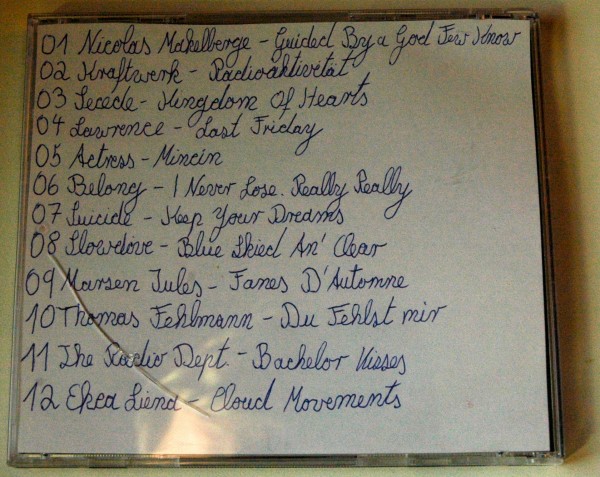 01 Nicolas Makelberge - Guided By a God Few Know
02 Kraftwerk - Radioaktivität
03 Secede - Kingdom Of Hearts
04 Lawrence - Last Friday
05 Actress - Mincin
06 Belong - I Never Lose. Really Really
07 Suicide - Keep Your Dreams
08 Slowdive - Blue Skied An' Clear
09 Marsen Jules - Fanes D'Automne
10 Thomas Fehlmann - Du Fehlst mir
11 The Radio Dept. - Bachelor Kisses
12 Ekca Liena - Cloud Movements